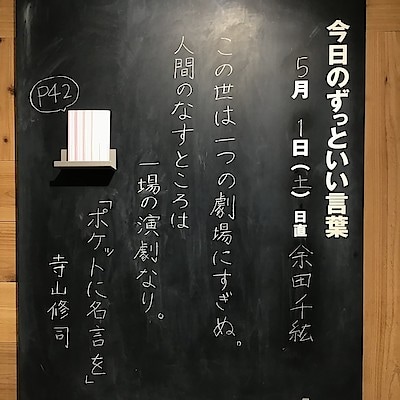 今日のずっといい言葉
5月1日(土)日直 余田千紘
この世は一つの劇場にすぎぬ。
人間のなすところは
一場の演劇なり。
「ポケットに名言を」
寺山修司
P42